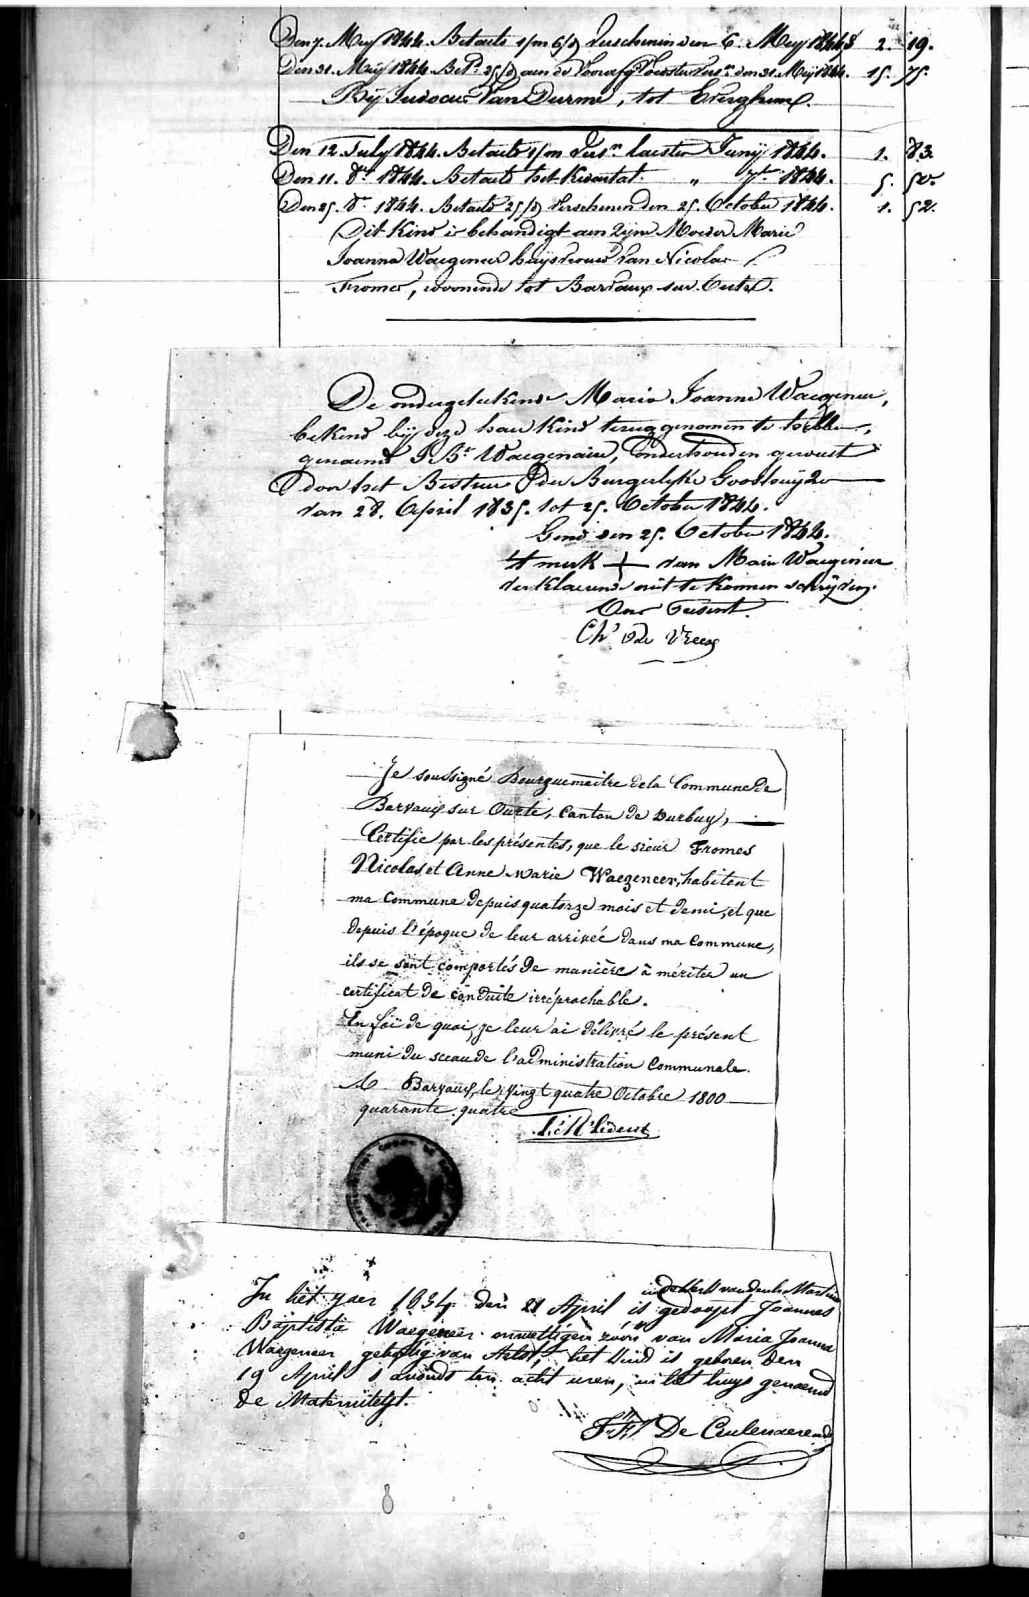 Den 7. Mey 1844. Betaelt 1/m 6/d verschenen den 6. Mey 1844 2. 19.
Den 31. Meij 1844 Bet. 25/d aen de Voorafg Voester den 31. Meij 1844. 15. 75.
Bij Judocus Van Durme, tot Everghem.
Den 12. July 1844. Betaelt 1/m laesten Junij 1844. 1. 83.
Den 11. 8r 1844. Betaelt het Kwartal " 7r 1844. 5. 50.
Den 25. 8r 1844. Betaeld 25/d Verschenen den 25. October 1844. 1. 52.
Dit Kind is behandigt aen Zijne Moeder Marie
Joanna Waegeneer huijsvrouw Van Nicolas
Fromes, woonende tot Barvaux sur Ourte.
De ondergeteekende Maria Joanna Waegeneer,
bekend bij deze haer Kind teruggenomen te hebben,
genaemd J. Bt Waegenaere, onderhouden geweest
door het Bestuer der Burgerlyke Godshuijzen
van 28. April 1835. tot 25. October 1844.
Gend den 25. October 1844.
't merk + van Marie Waegeneer
verklaerende niet te konnen schrijven.
Ons Present.
Ch. De Vreese
Je soussigné Bourguemaitre de la Commune de
Barvaux sur Ourte, Canton de Durbuy,
Certifie par les présentes, que le sieur Fromes
Nicolas et Anne Marie Waegeneer, habitent
ma Commune depuis quatorze mois et demi, et que
depuis l'époque de leur arrivée dans ma Commune,
ils se sont comportés de manière à mériter un
certificat de conduite irréprochable.
En foi de quoi, je leur ai délivré le présent
muni du sceau de l'administration Communale.
A Barvaux, le vingt quatre Octobre 1800
quarante quatre
In het yaer 1834 den 21 April is gedoopt Joannes
Baptista Waegeneer onwettigen zoon van Maria Joanna
Waegeneer geboortig van Aelst, het kind is geboren den
19 April s avonds ten acht uren, in het huys genaemd
de Maternitéyt.
De Ceulenaere